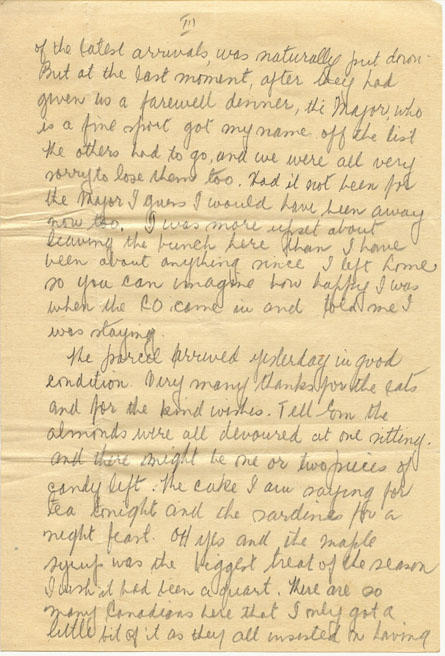 III
of the latest arrivals, was naturally put down.
But at the last moment, after they had
given us a farewell dinner, the Major, who
is a fine sport got my name off the list
the others had to go, and we were all very
sorry to lose them too. Had it not been for
the Major I guess I would have been away
now too. I was more upset about
leaving the bunch here than I have
been about anything since I left home
so you can imagine how happy I was
when the CO. came in and told me I
was staying.
The parcel arrived yesterday in good
condition. Very many thanks for the eats
and for the kind wishes. Tell Tom the
almonds were all devoured at one sitting.
and there might be one or two pieces of
candy left. The cake I am saving for
tea tonight and the sardenes for a
night feast. Oh yes and the maple
syrup was the biggest treat of the season
I wish it had been a quart. There are so
many Canadians here that I only got a
little bit of it as they all insisted on having